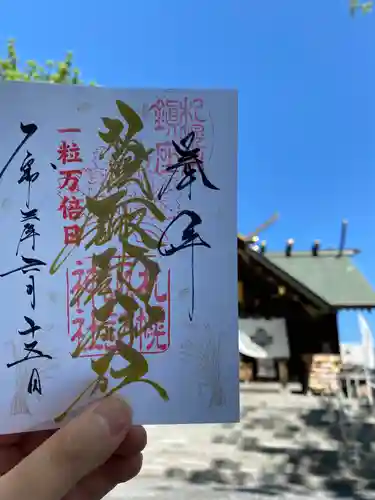 奉拝
札幌
鎮座
諏訪神社
札幌
諏訪
神社
一粒万倍日
令和
十五日